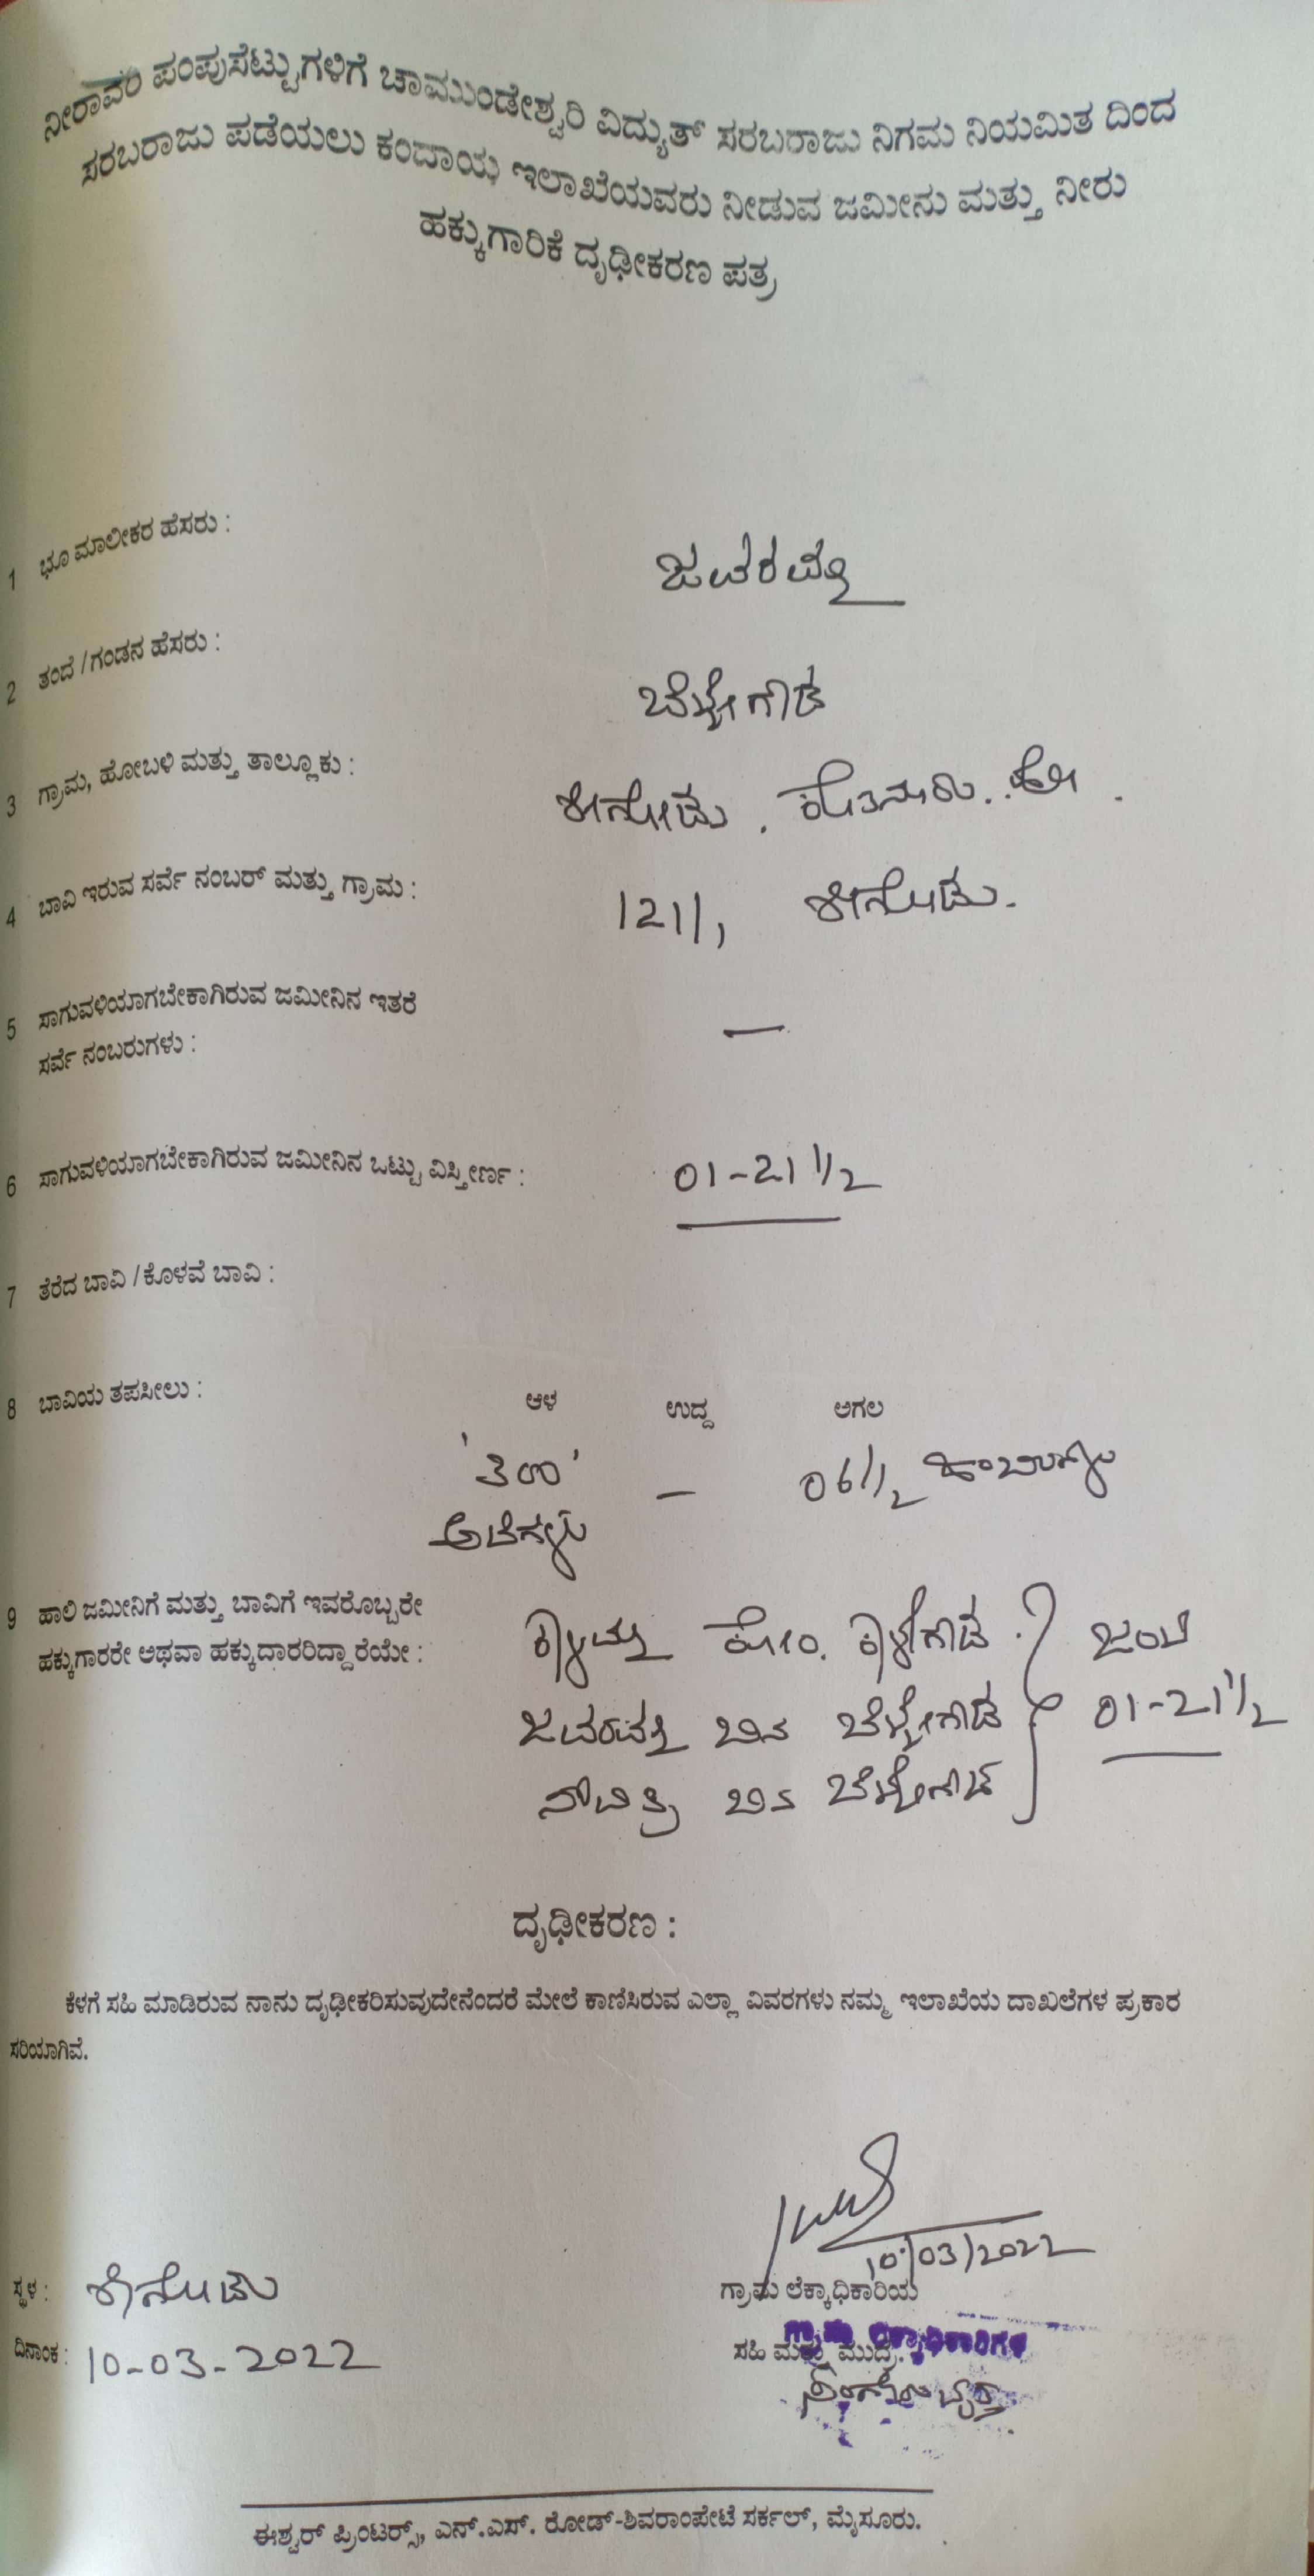 ನೀರಾವರಿ ಪಂಪುಸೆಟ್ಟುಗಳಿಗೆ ಚಾಮುಂಡೇಶ್ವರಿ ವಿದ್ಯುತ್ ಸರಬರಾಜು ನಿಗಮ ನಿಯಮಿತ ದಿಂದ
ಸರಬರಾಜು ಪಡೆಯಲು ಕಂದಾಯ ಇಲಾಖೆಯವರು ನೀಡುವ ಜಮೀನು ಮತ್ತು ನೀರು
ಹಕ್ಕುಗಾರಿಕೆ ದೃಢೀಕರಣ ಪತ್ರ
1 ಭೂ ಮಾಲೀಕರ ಹೆಸರು : ಜವರಮ್ಮ
2 ತಂದೆ / ಗಂಡನ ಹೆಸರು : ಚೆಳ್ಳೇಗೌಡ
3 ಗ್ರಾಮ, ಹೋಬಳಿ ಮತ್ತು ತಾಲ್ಲೂಕು :
4 ಬಾವಿ ಇರುವ ಸರ್ವೆ ನಂಬರ್ ಮತ್ತು ಗ್ರಾಮ : 121/,
5 ಸಾಗುವಳಿಯಾಗಬೇಕಾಗಿರುವ ಜಮೀನಿನ ಇತರೆ
ಸರ್ವೆ ನಂಬರುಗಳು : —
6 ಸಾಗುವಳಿಯಾಗಬೇಕಾಗಿರುವ ಜಮೀನಿನ ಒಟ್ಟು ವಿಸ್ತೀರ್ಣ : 01-21 1/2
7 ತೆರೆದ ಬಾವಿ / ಕೊಳವೆ ಬಾವಿ :
8 ಬಾವಿಯ ತಪಸೀಲು : ಆಳ ಉದ್ದ ಅಗಲ
'300' – 06 1/2
ಅಡಿಗಳು
9 ಹಾಲಿ ಜಮೀನಿಗೆ ಮತ್ತು ಬಾವಿಗೆ ಇವರೊಬ್ಬರೇ
ಹಕ್ಕುಗಾರರೇ ಅಥವಾ ಹಕ್ಕುದಾರರಿದ್ದಾರೆಯೇ :
ಕೋಂ. ಜಂಟಿ
ಜವರಮ್ಮ ಬಿನ್ ಚೆಳ್ಳೇಗೌಡ 01-21 1/2
ಸಾವಿತ್ರಿ ಬಿನ್ ಚೆಳ್ಳೇಗೌಡ
ದೃಢೀಕರಣ :
ಕೆಳಗೆ ಸಹಿ ಮಾಡಿರುವ ನಾನು ದೃಢೀಕರಿಸುವುದೇನೆಂದರೆ ಮೇಲೆ ಕಾಣಿಸಿರುವ ಎಲ್ಲಾ ವಿವರಗಳು ನಮ್ಮ ಇಲಾಖೆಯ ದಾಖಲೆಗಳ ಪ್ರಕಾರ
ಸರಿಯಾಗಿವೆ.
10/03/2022
ಸ್ಥಳ :
ಗ್ರಾಮ ಲೆಕ್ಕಾಧಿಕಾರಿಯ
ದಿನಾಂಕ : 10-03-2022
ಸಹಿ ಮತ್ತು ಮುದ್ರೆ.
ಗ್ರಾಮ ಲೆಕ್ಕಾಧಿಕಾರಿಗಳ
ವೃತ್ತ
ಈಶ್ವರ್ ಪ್ರಿಂಟರ್ಸ್, ಎನ್.ಎಸ್. ರೋಡ್-ಶಿವರಾಂಪೇಟೆ ಸರ್ಕಲ್, ಮೈಸೂರು.